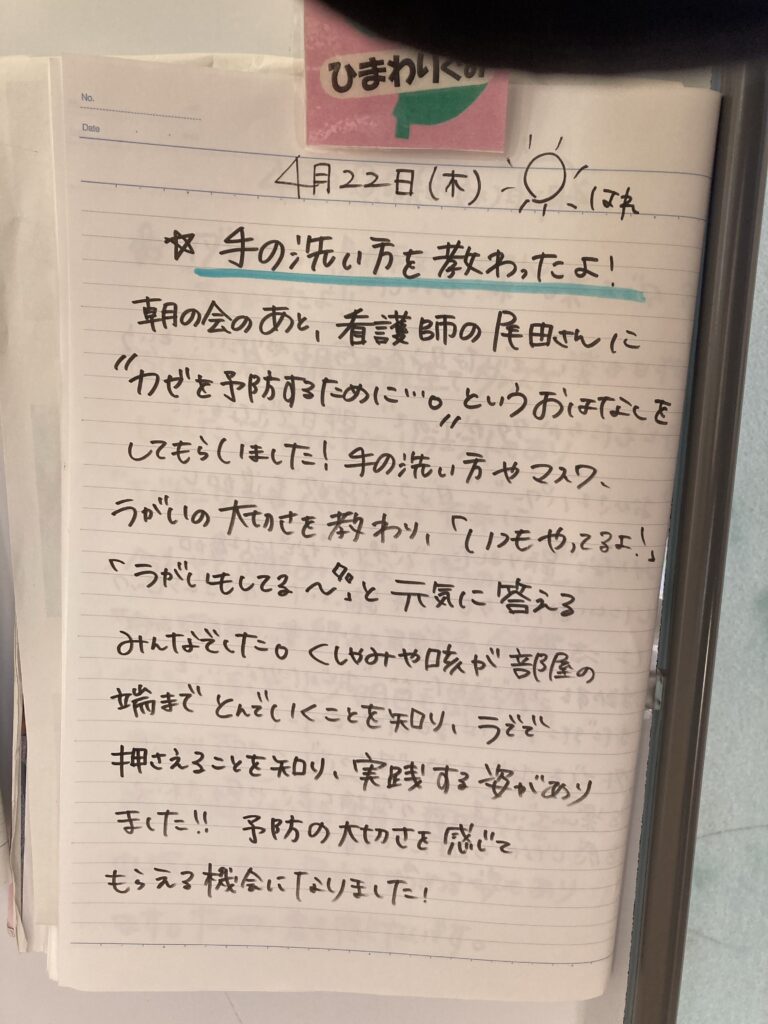 ひまわりぐみ
No.
Date
4月22日(木) はれ
☆ 手の洗い方を教わったよ!
朝の会のあと、看護師の尾田さんに
〃カゼを予防するために…。〃というおはなしを
してもらいました! 手の洗い方やマスク、
うがいの大切さを教わり、「いつもやってるよ!」
「うがいもしてる〜!!」と元気に答える
みんなでした。くしゃみや咳が部屋の
端までとんでいくことを知り、うでで
押さえることを知り、実践する姿があり
ました!! 予防の大切さを感じて
もらえる機会になりました!